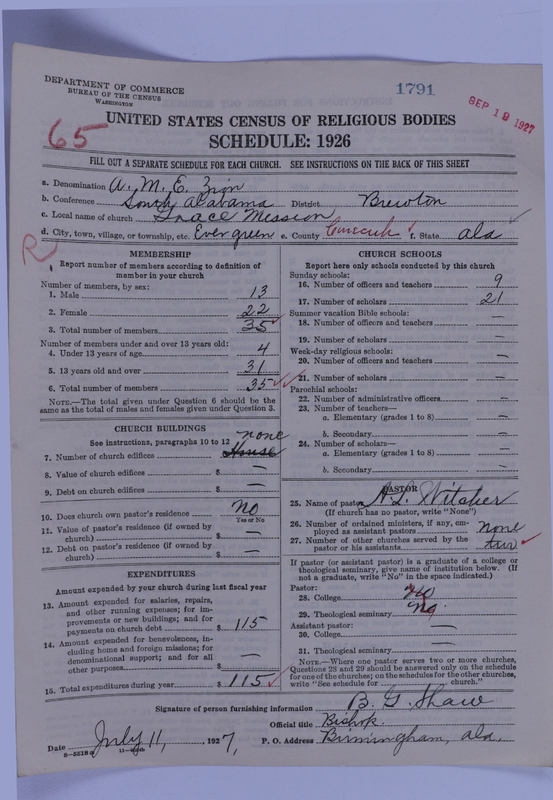 DEPARTMENT OF COMMERCE
BUREAU OF THE CENSUS
WASHINGTON
1791
SEP 19 1927
65
UNITED STATES CENSUS OF RELIGIOUS BODIES
SCHEDULE: 1926
FILL OUT A SEPARATE SCHEDULE FOR EACH CHURCH. SEE INSTRUCTIONS ON THE BACK OF THIS SHEET
a. Denomination A. M. E. Zion
b. Conference South Alabama District Brewton
c. Local name of church Grace Mission
d. City, town, village, or township, etc. Evergreen e. County Conecuh f. State Ala
R
MEMBERSHIP
Report number of members according to definition of member in your church
Number of members, by sex:
1. Male 13
2. Female 22
3. Total number of members 35
Number of members under and over 13 years old:
4. Under 13 years of age 4
5. 13 years old and over 31
6. Total number of members 35
NOTE.—The total given under Question 6 should be the same as the total of males and females given under Question 3.
CHURCH BUILDINGS
See instructions, paragraphs 10 to 12
none
7. Number of church edifices House
8. Value of church edifices $ —
9. Debt on church edifices $ —
10. Does church own pastor's residence? No
Yes or No
11. Value of pastor's residence (if owned by church) $ —
12. Debt on pastor's residence (if owned by church) $ —
EXPENDITURES
Amount expended by your church during last fiscal year
13. Amount expended for salaries, repairs, and other running expenses; for improvements or new buildings; and for payments on church debt $ 115
14. Amount expended for benevolences, including home and foreign missions; for denominational support; and for all other purposes $ —
15. Total expenditures during year $ 115
CHURCH SCHOOLS
Report here only schools conducted by this church
Sunday schools:
16. Number of officers and teachers 9
17. Number of scholars 21
Summer vacation Bible schools:
18. Number of officers and teachers —
19. Number of scholars —
Week-day religious schools:
20. Number of officers and teachers —
21. Number of scholars —
Parochial schools:
22. Number of administrative officers —
23. Number of teachers—
a. Elementary (grades 1 to 8) —
b. Secondary —
24. Number of scholars—
a. Elementary (grades 1 to 8) —
b. Secondary —
PASTOR
25. Name of pastor H. L. Witaker
(If church has no pastor, write "None")
26. Number of ordained ministers, if any, employed as assistant pastors none
27. Number of other churches served by the pastor or his assistants two
If pastor (or assistant pastor) is a graduate of a college or theological seminary, give name of institution below. (If not a graduate, write "No" in the space indicated.)
Pastor:
28. College No
29. Theological seminary No
Assistant pastor:
30. College —
31. Theological seminary —
NOTE.—Where one pastor serves two or more churches, Questions 28 and 29 should be answered only on the schedule for one of the churches; on the schedules for the other churches, write "See schedule for church."
Signature of person furnishing information B. G. Shaw
Official title Bishop
Date July 11, 1927, P. O. Address Birmingham, Ala.